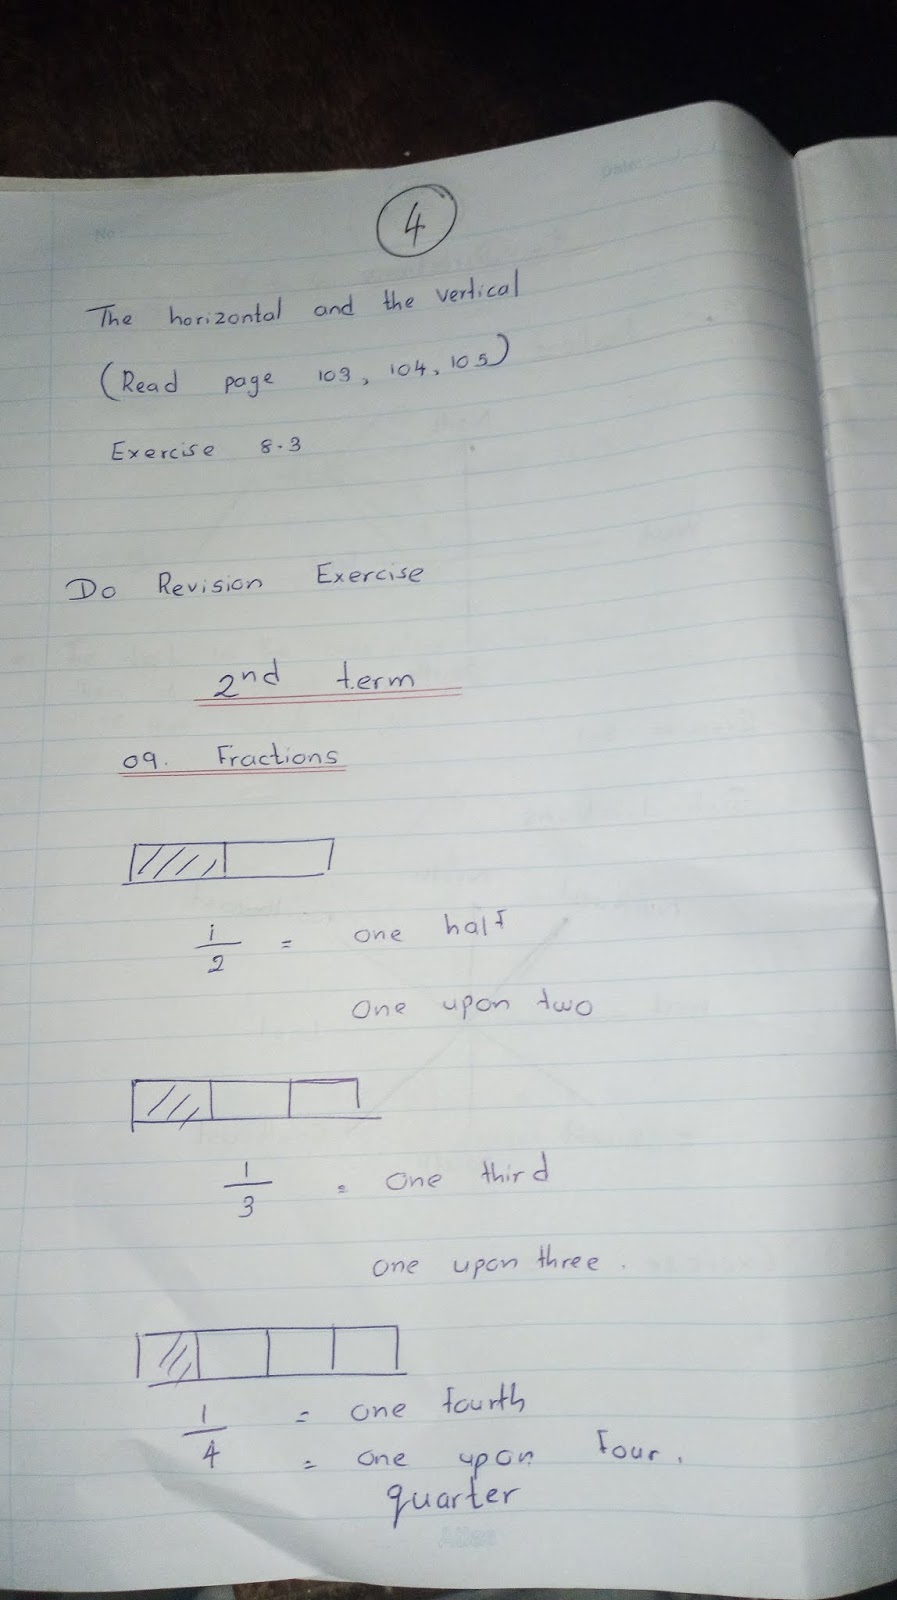 No
Date:
4
The horizontal and the vertical
(Read page 103, 104, 105)
Exercise 8.3
Do Revision Exercise
2nd term
09. Fractions
1/2 = one half
One upon two
1/3 = One third
one upon three.
1/4 = one fourth
= one upon four.
quarter